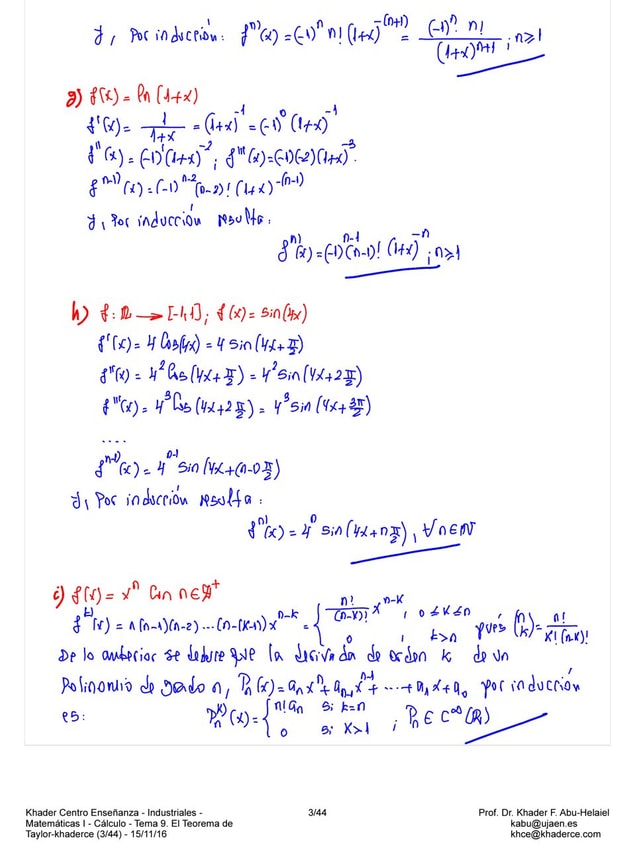 y, por inducción: f^{n)}(x) = (-1)^n n! (1+x)^{-(n+1)} = \frac{(-1)^n \cdot n!}{(1+x)^{n+1}} ; n≥1
g) f(x) = ln(1+x)
f'(x) = \frac{1}{1+x} = (1+x)^{-1} = (-1)^0 (1+x)^{-1}
f''(x) = (-1)^1(1+x)^{-2} ; f'''(x) = (-1)(-2)(1+x)^{-3}.
f^{n-1)}(x) = (-1)^{n-2} (n-2)! (1+x)^{-(n-1)}
y, por inducción resulta:
f^{n)}(x) = (-1)^{n-1} (n-1)! (1+x)^{-n} ; n≥1
h) f: ℝ → [-1,1] ; f(x) = sin(4x)
f'(x) = 4 Cos(4x) = 4 sin(4x+\frac{π}{2})
f''(x) = 4^2 Cos(4x+\frac{π}{2}) = 4^2 sin(4x+2\frac{π}{2})
f'''(x) = 4^3 Cos(4x+2\frac{π}{2}) = 4^3 sin(4x+\frac{3π}{2})
....
f^{n-1)}(x) = 4^{n-1} sin(4x+(n-1)\frac{π}{2})
y, por inducción resulta:
f^{n)}(x) = 4^n sin(4x+n\frac{π}{2}), ∀n∈ℕ
i) f(x) = x^n Con n∈ℤ^+
f^{k)}(x) = n(n-1)(n-2)...(n-(k-1))x^{n-k} = { \frac{n!}{(n-k)!} x^{n-k} , 0≤k≤n
0 , k>n pués \binom{n}{k} = \frac{n!}{k!(n-k)!}
De lo anterior se deduce que la derivada de orden k de un
Polinomio de grado n, P_n(x) = a_n x^n + a_{n-1} x^{n-1} + ... + a_1 x + a_0 por inducción
es: P_n^{k)}(x) = { n! a_n si k=n
0 si k>1 ; P_n ∈ C^∞(ℝ)
Khader Centro Enseñanza - Industriales -
Matemáticas I - Cálculo - Tema 9. El Teorema de
Taylor-khaderce (3/44) - 15/11/16
3/44
Prof. Dr. Khader F. Abu-Helaiel
kabu@ujaen.es
khce@khaderce.com